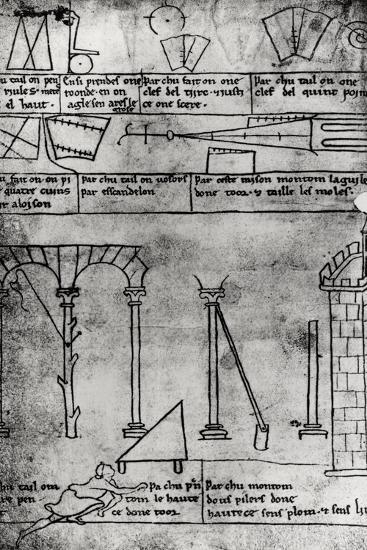 u tail om pen
riules
el haut.
Ensi prendes one
roonde en on
agle sen ares le
grose
Par chu fait on one
clef del tiire
ce one scere.
Par chu tail on one
clef del quint poin
u fait on on pi
e quatre cuins
aloison
Par chu tail on vosors
par escandelon.
Par ceste raison montom laguile
done toor. & taille les moles.
u tail om
re pen
Pa chu pn
tom le haute
ce done toor
Par chu montom
dous pilers done
hautece sens plom. & sens